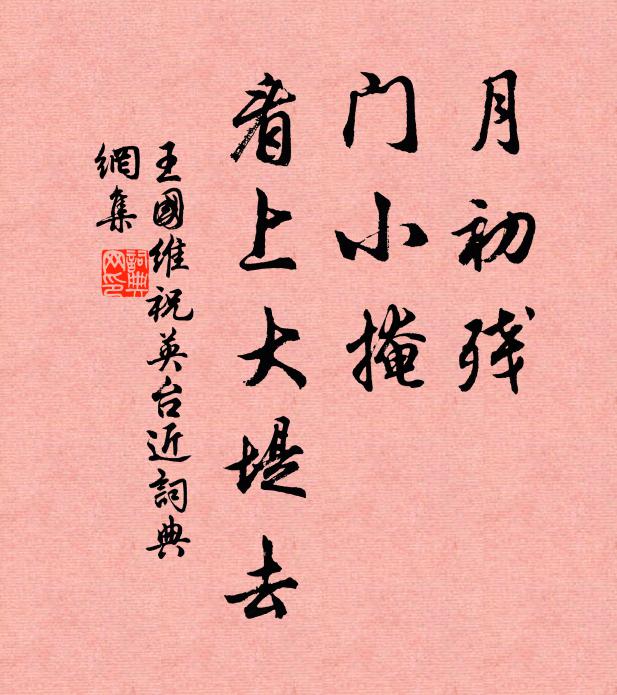 月初残
门小掩
看上大堤去
王國維祝英台近詞典
網集
詞典
网印